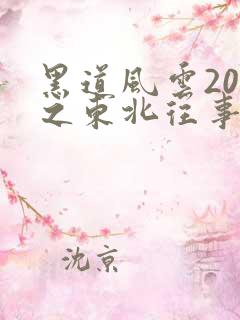 黑道風雲20
之東北往事
沈京